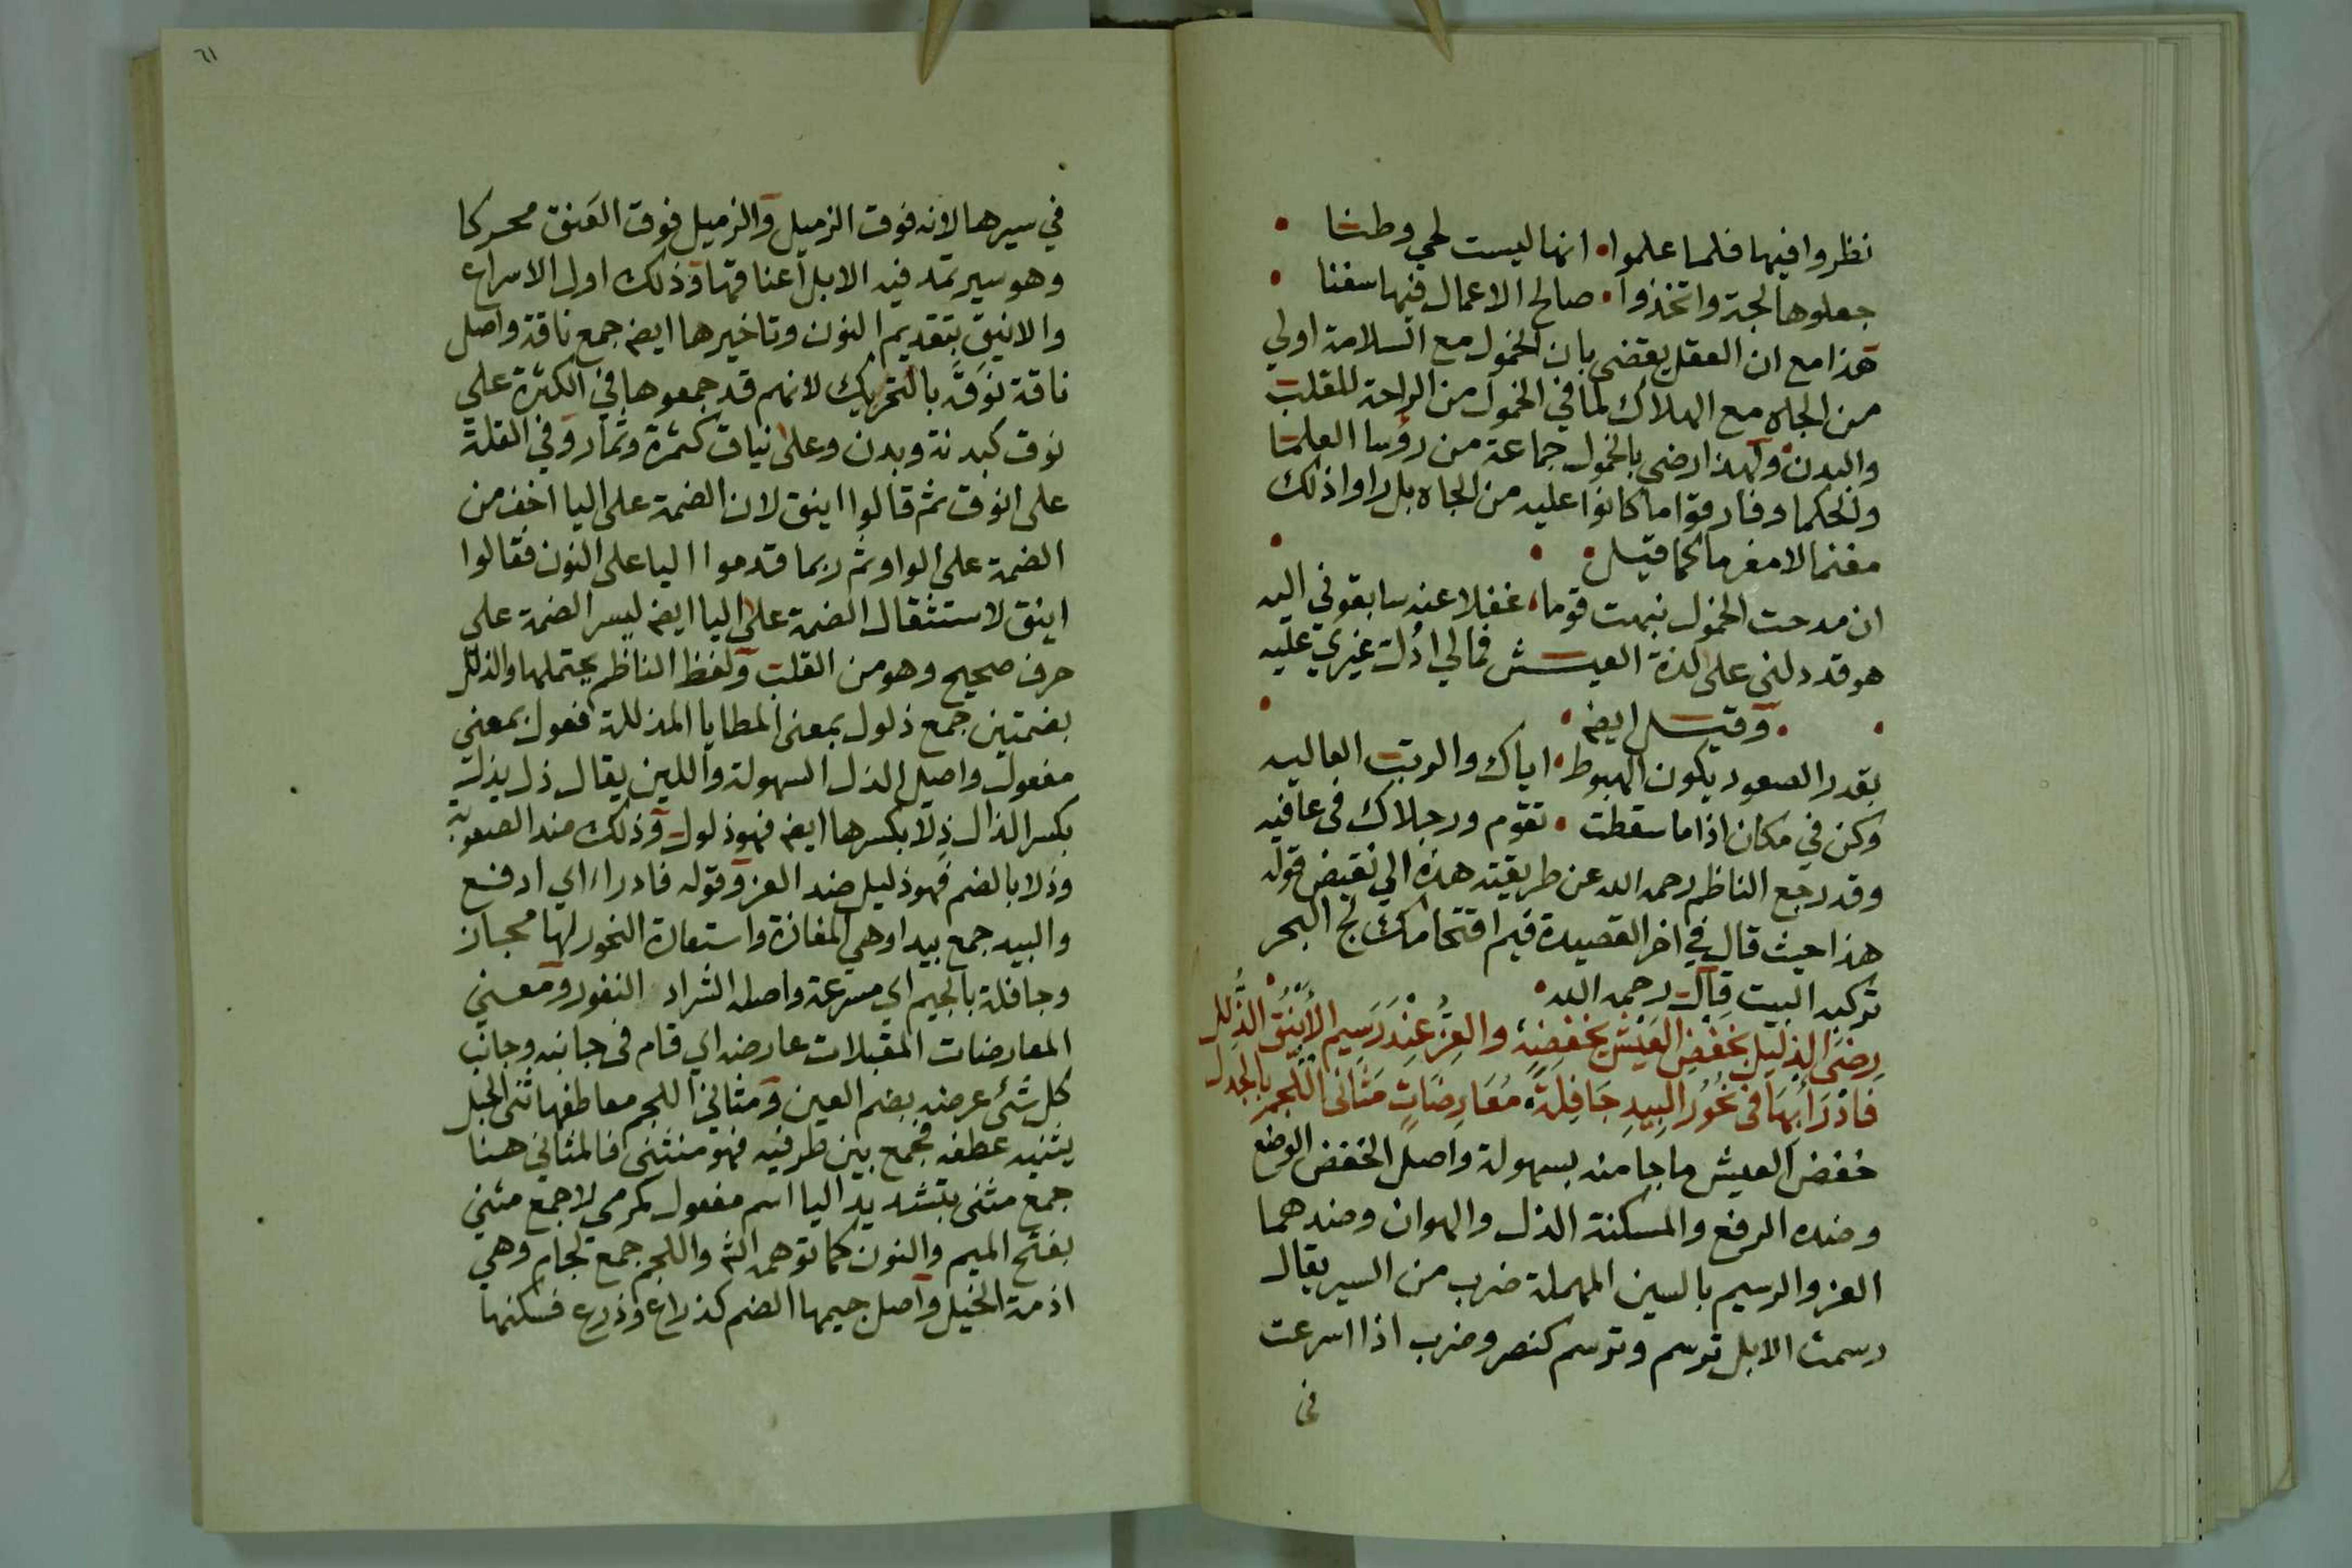 نظروا فيها فلما علموا • انها ليست لحي وطنا •
جعلوها لجة واتخذوا • صالح الاعمال فيها سفنا •
هذا مع ان العقل يقضي بان الخمول مع السلامة اولي
من الجاه مع الهلاك لما في الخمول من الراحة للقلب
والبدن ولهذا رضي بالخمول جماعة من رؤسا العلما
والحكما وفارقوا ما كانوا عليه من الجاه بل راوا ذلك
مغنما لا مغرما كما قيل •
ان مدحت الخمول نبهت قوما • غفلا عنه سابقوني اليه
هو قد دلني على لذة العيش فمالي ادل غيري عليه
• وقيل ايضه •
بقدر الصعود يكون الهبوط • اياك والرتب العاليه
وكن في مكان اذا ما سقطت • تقوم ورجلاك في عافيه
وقد رجع الناظم رحمه الله عن طريقته هذه الي نقيض قوله
هذا حيث قال في اخر القصيدة فيم اقتحامك لج البحر
تركبه البيت قال رحمه الله •
رِضَى الذليل بخفض العَيْش يخفضه • والعِزُّ عِنْدَ رَسِيم الأَيْنُق الذُّلُل
فَادْرَأْ بِهَا في نُحُور البِيدِ جَافِلةً • مُعَارِضَاتٍ مَثَانى اللُّجم بالجدل
خفض العيش ما جا منه بسهولة واصل الخفض الوضع
وضده الرفع والمسكنة الذل والهوان وضدهما
العز والرسيم بالسين المهملة ضرب من السير يقال
رسمت الابل ترسم وترسم كنصر وضرب اذا اسرعت
في
٦١
في سيرها لانه فوق الزميل والزميل فوق العَنق محركا
وهو سير تمد فيه الابل اعناقها وذلك اول الاسراع
والانيق بتقديم النون وتاخيرها ايضه جمع ناقة واصل
ناقة نَوَقَة بالتحريك لانهم قد جمعوها في الكثرة علي
نوق كبدنة وبدن وعلى نياق كثمرة وثمار وفي القلة
على انوق ثم قالوا اينق لان الضمة على اليا اخف من
الضمة على الواو ثم ربما قدموا اليا على النون فقالوا
اينق لاستثقال الضمة على اليا ايضه ليسر الضمة علي
حرف صحيح وهو من القلب ولفظ الناظم يحتملها والذلل
بضمتين جمع ذلول بمعنى المطايا المذللة فعول بمعني
مفعول واصل الذل السهولة واللين يقال ذل يذل
بكسر الذال ذِلا بكسرها ايضه فهو ذلول وذلك ضد الصعوبة
وذلا بالضم فهو ذليل ضد العز وقوله فادراء اي ادفع
والبيد جمع بيدا وهي المفازة واستعارة النحور لها مجاز
وجافلة بالجيم اي مسرعة واصله الشراد النفور ومعني
المعارضات المقبلات عارضه اي قام في جانبه وجانب
كل شئ عرضه بضم العين ومثاني اللجم معاطفها ثنى الحبل
يثنيه عطفه فجمع بين طرفيه فهو منثنى فالمثاني هنا
جمع مثنى بتشديد اليا اسم مفعول كمرمي لا جمع مثني
بفتح الميم والنون كما توهمه الشه واللجم جمع لجام وهي
ازمة الخيل واصل جيمها الضم كذراع وذرع فسكنها